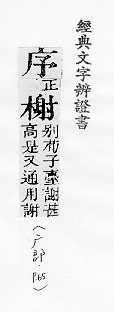 經典文字辨證書
序正
榭别荀子臺謝甚高是又通用謝
(广部·P.65)